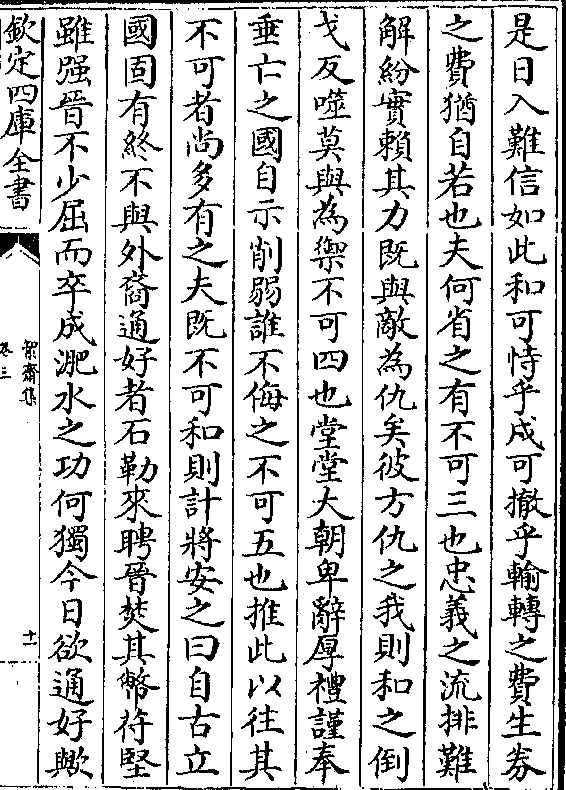 是日入難信如此和可恃乎戍可撤乎輸轉之費生劵
之費猶自若也夫何省之有不可三也忠義之流排難
解紛實賴其力既與敵為仇矣彼方仇之我則和之倒
戈反噬莫與為禦不可四也堂堂大朝卑辭厚禮謹奉
垂亡之國自示削弱誰不侮之不可五也推此以往其
不可者尚多有之夫既不可和則計將安之曰自古立
國固有終不與外裔通好者石勒來聘晉焚其幣苻堅
雖强晉不少屈而卒成淝水之功何獨今日欲通好歟
欽定四庫全書
絜齋集
卷三
十一